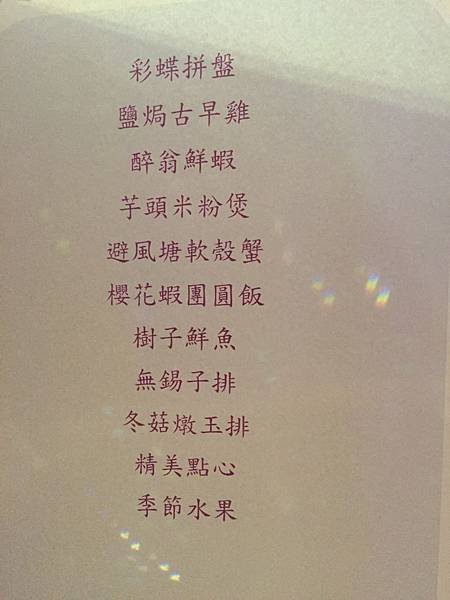 彩蝶拼盤
鹽焗古早雞
醉翁鮮蝦
芋頭米粉煲
避風塘軟殼蟹
櫻花蝦團圓飯
樹子鮮魚
無錫子排
冬菇燉玉排
精美點心
季節水果